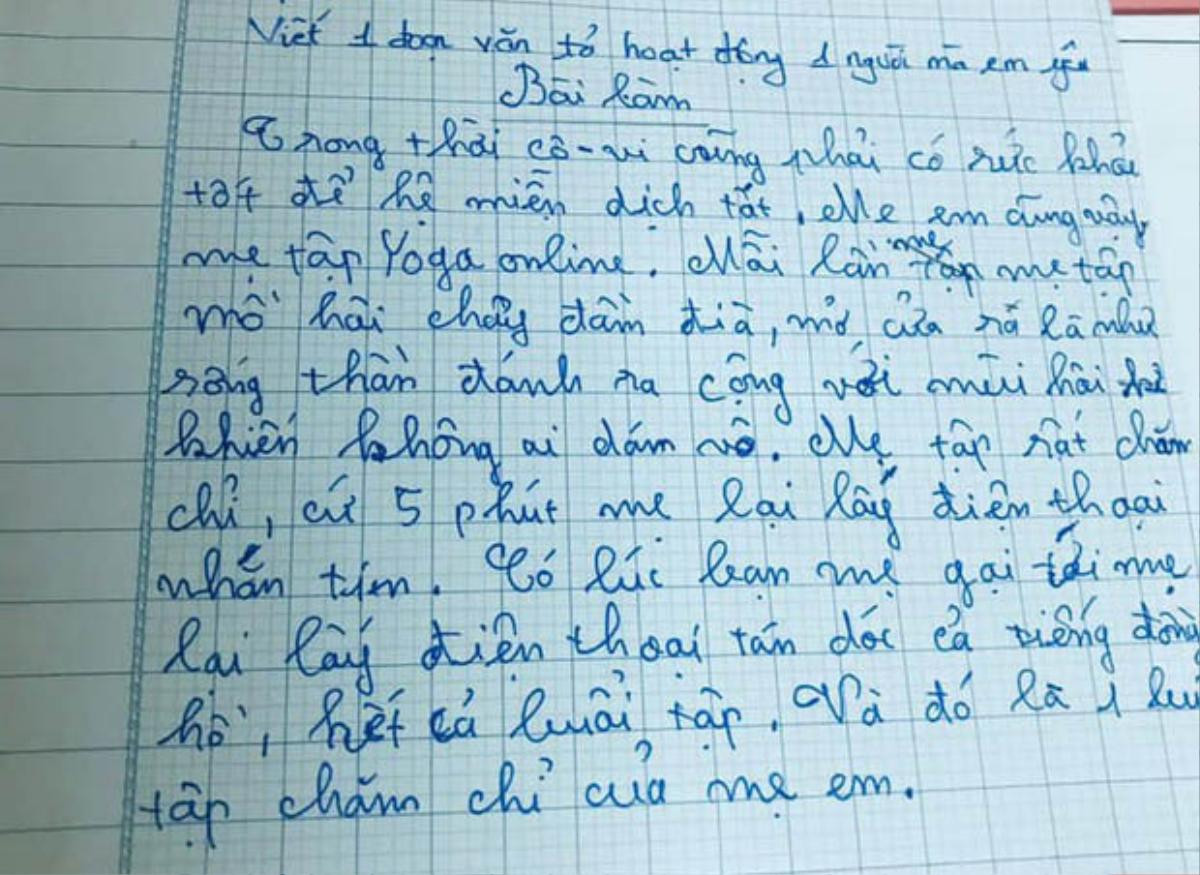 Viết 1 đoạn văn tả hoạt động 1 người mà em yêu
Bài làm
Trong thời cô-vi cũng phải có sức khỏe
tốt để hệ miễn dịch tốt. Mẹ em cũng vậy,
mẹ tập Yoga online. Mỗi lần mẹ tập mẹ tập
mồ hôi chảy đầm đìa, mở cửa rả là như
sóng thần đánh ra cộng với mùi hôi
khiến không ai dám vô. Mẹ tập rất chăm
chỉ, cứ 5 phút mẹ lại lấy điện thoại
nhắn tin. Có lúc bạn mẹ gọi tới mẹ
lại lấy điện thoại tán dóc cả tiếng đồng
hồ, hết cả buổi tập. Và đó là 1
tập chăm chỉ của mẹ em.